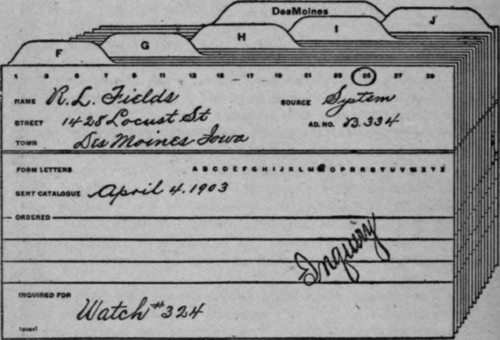 DesMoines
F G H I J
1 3 5 7 9 11 13 15 17 19 21 23 25 27 29
NAME R. L. Fields SOURCE System
STREET 1428 Locust St AD. NO. B.334
TOWN Des Moines Iowa
FORM LETTERS A B C D E F G H I J K L M O P R S T U V W X Y Z
SENT CATALOGUE April 4. 1903
ORDERED
Inquiry
INQUIRED FOR Watch #324